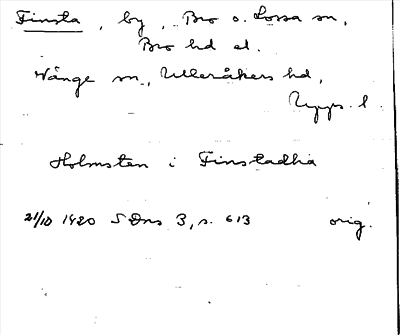 Finsta, by, Bro o. Lossa sn,
Bro hd el.
Vänge sn, Ulleråkers hd,
Upps. l.
Holmsten i Finstadha
21/10 1420 SDns 3, s. 613 orig.